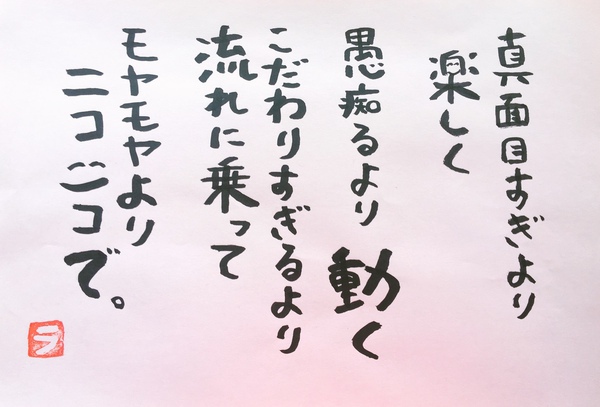 真面目すぎより
楽しく
愚痴るより 動く
こだわりすぎるより
流れに乗って
モヤモヤより
ニコニコで。
ヲ